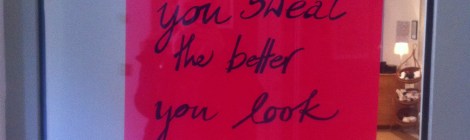 you sweat
the better
you look